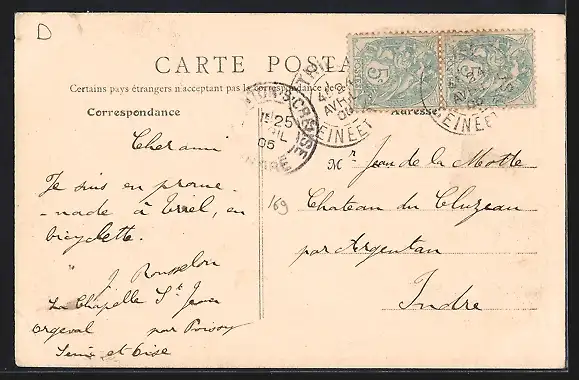 D
CARTE POSTA
Certains pays étrangers n'acceptant pas la correspondance de ce
Correspondance
Adresse
Cher ami
Je suis en prome-
-nade à Triel, en
bicyclette.
J. Rousselon
La Chapelle St Jean
Orgeval par Poissy
Seine et Oise
169
Mr Jean de la Motte
Chateau du Cluzeau
par Argentan
Indre
25
05
SEINE ET
5c
5c